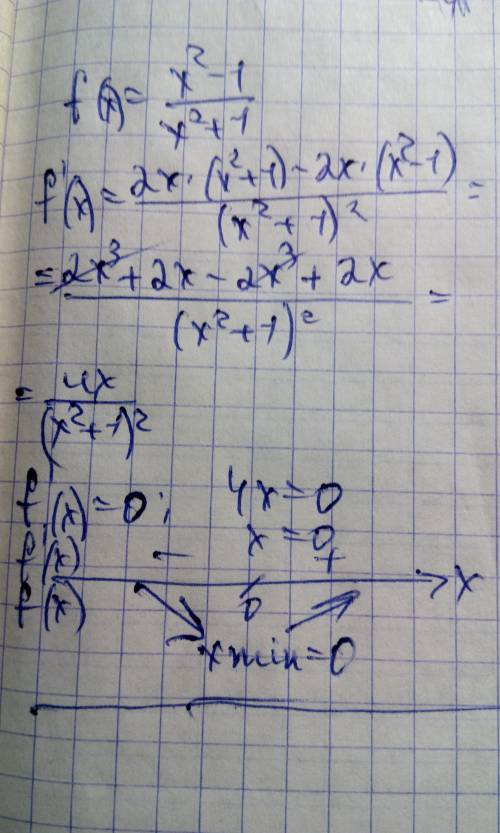 f(x) = (x² - 1)/(x² + 1)
f'(x) = (2x · (x² + 1) - 2x · (x² - 1))/(x² + 1)² =
= (2x³ + 2x - 2x³ + 2x)/(x² + 1)² =
= 4x/(x² + 1)²
f'(x) = 0; 4x = 0
x = 0
f'(x) - +
f(x) 0 x
xmin = 0